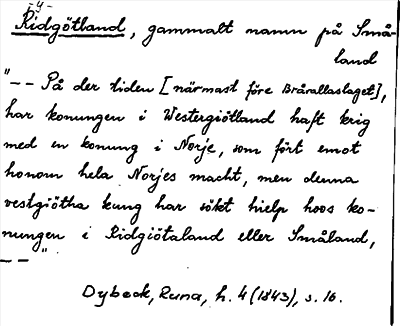 -y-
Ridgötland, gammalt namn på Små-
land
"-- På der tiden [närmast före Bråvallaslaget],
har konungen i Westergiötland haft krig
med en konung i Norje, som fört emot
honom hela Norjes macht, men denna
vestgiötha kung har sökt hielp hoos ko-
nungen i Ridgiötaland eller Småland,
--"
Dybeck, Runa, h. 4 (1843), s. 16.